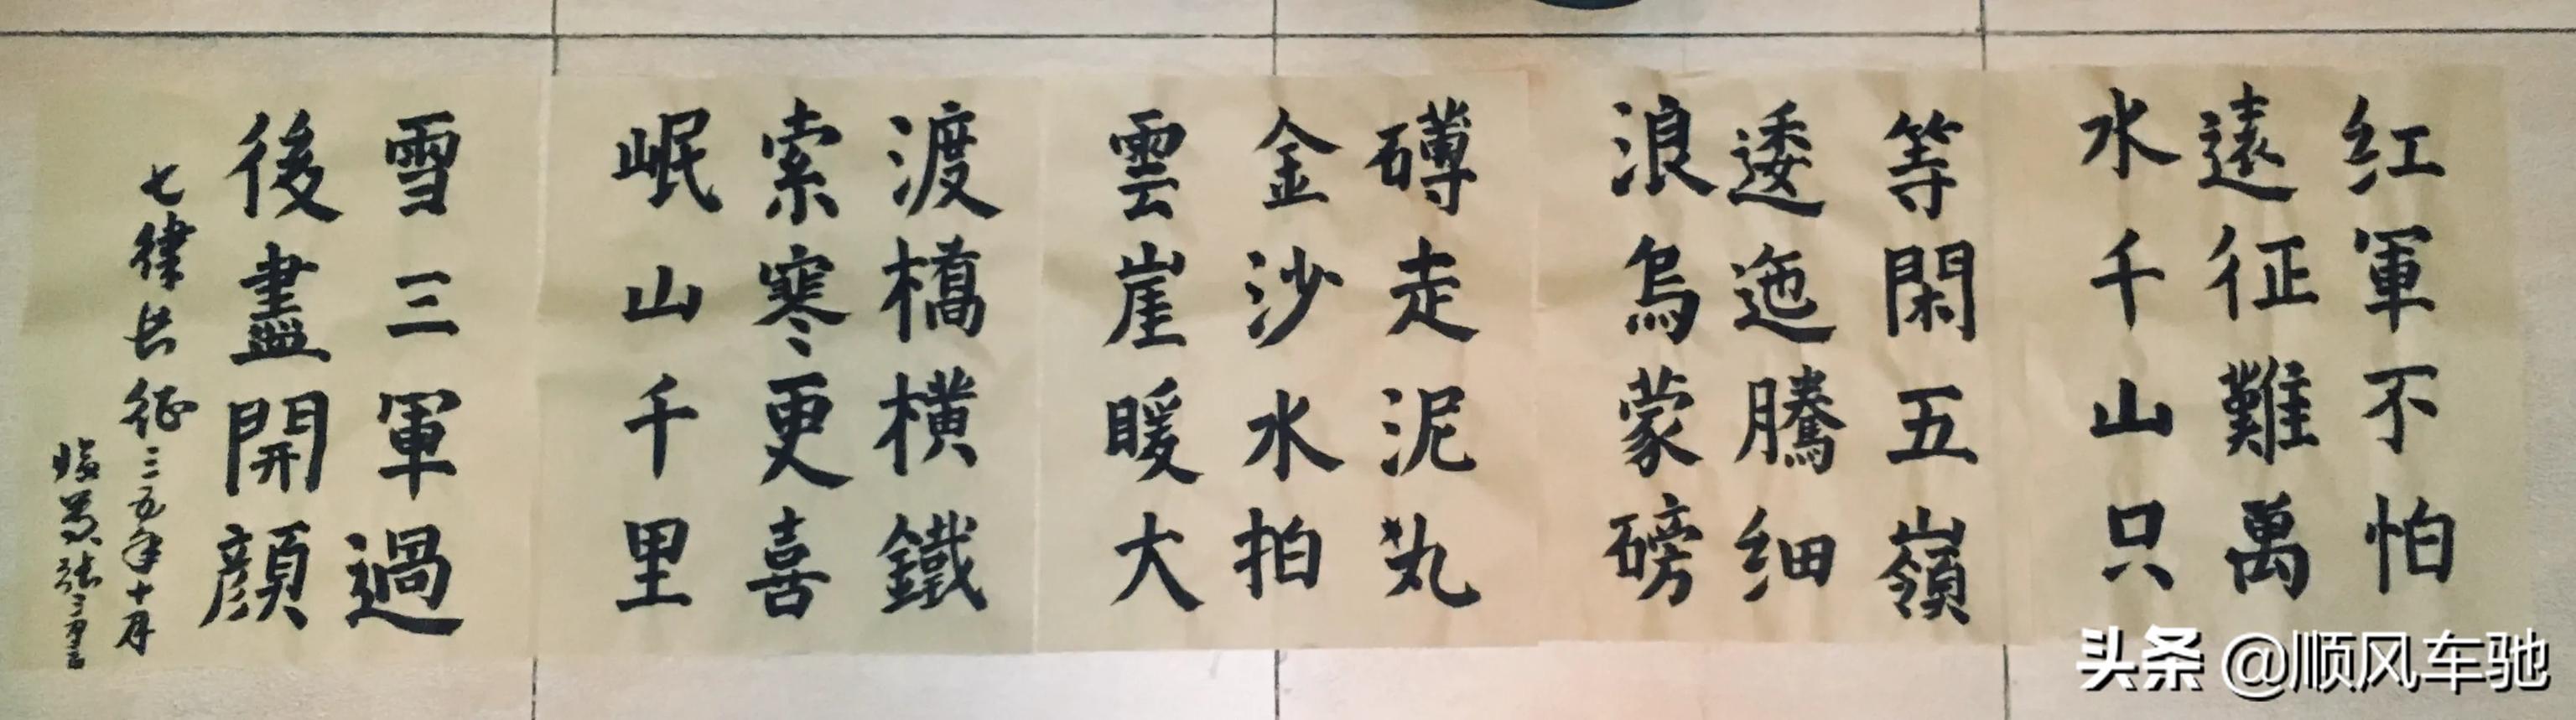 红軍不怕
遠征難萬
水千山只
等閑五嶺
逶迤騰细
浪烏蒙磅
礴走泥丸
金沙水拍
雲崖暖大
渡橋横鐵
索寒更喜
岷山千里
雪三軍過
後盡開顔
七律长征三五年十月
头条 @顺风车驰